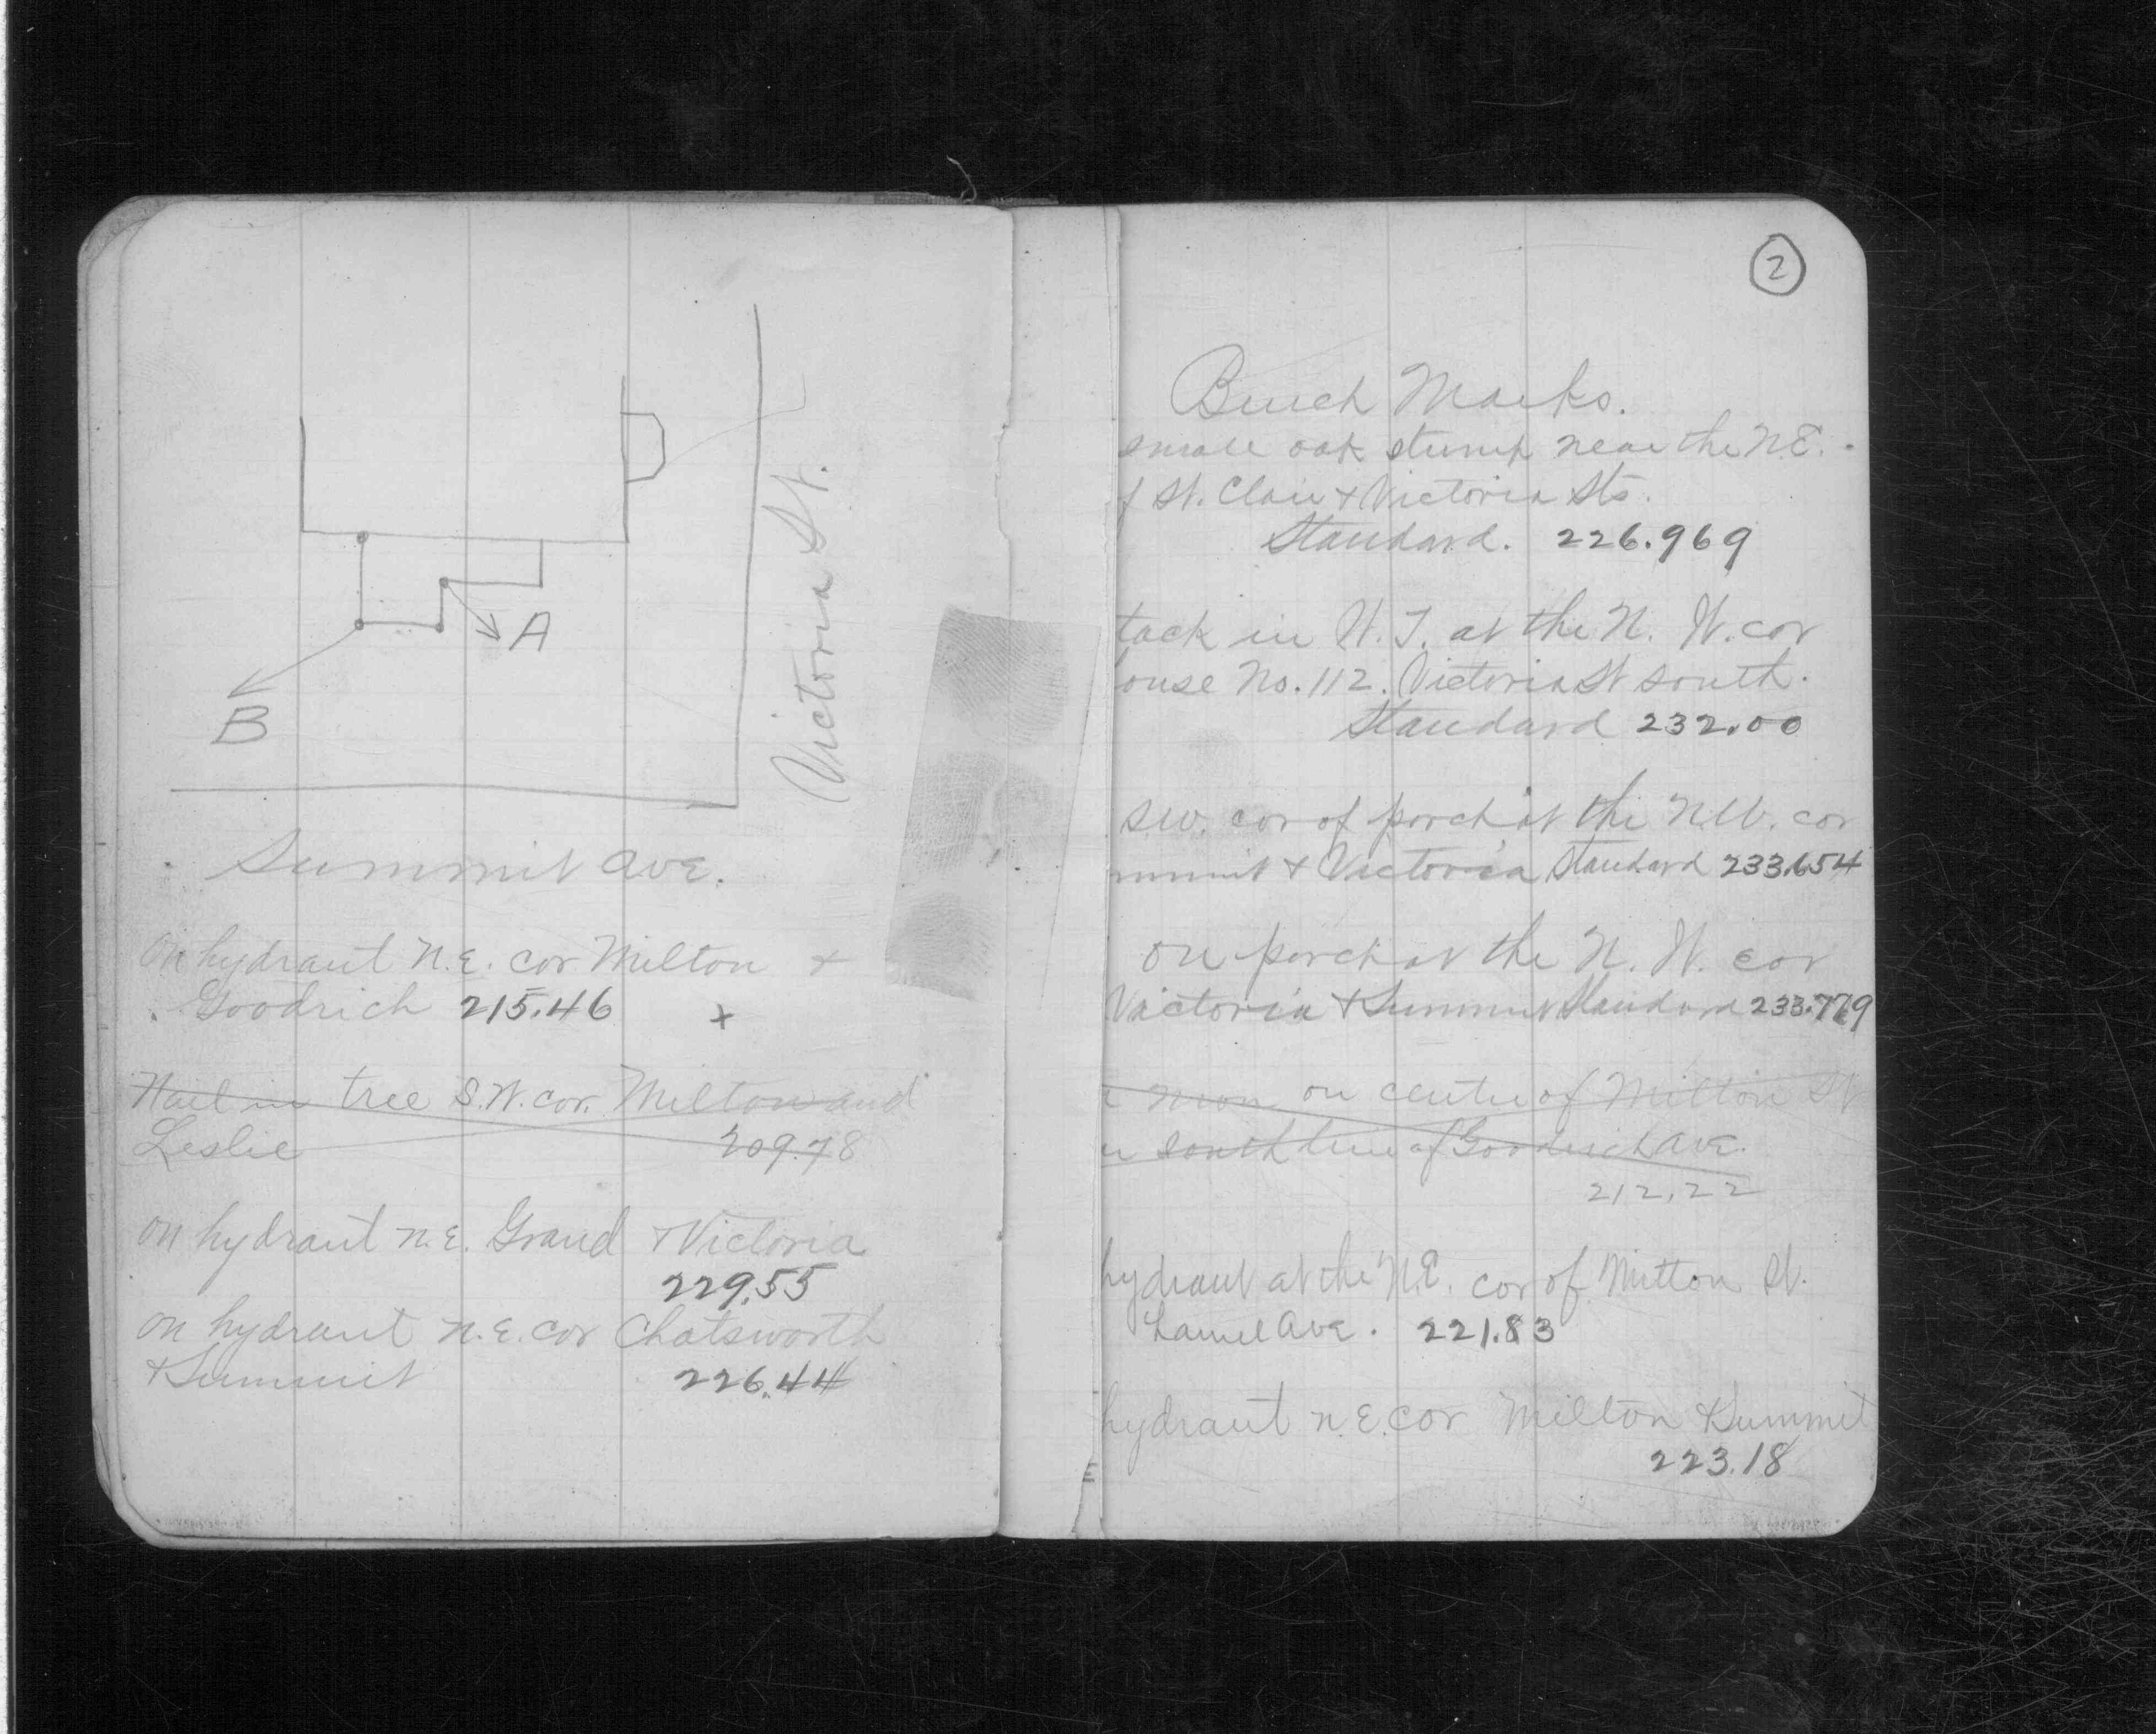 A
B
Victoria St.
Summit Ave.
On hydrant N.E. cor. Milton +
Goodrich 215.46 x
Nail in tree S.W. cor. Milton and
Leslie 209.78
On hydrant N.E. Grand + Victoria
229.55
On hydrant N.E. cor Chatsworth
+ Summit 226.44
2
Bench Marks.
small oak stump near the N.E.
f St. Clair + Victoria Sts.
Standard. 226.969
tack in W.T. at the N. W. cor
ouse No. 112. Victoria St south.
Standard 232.00
SW. cor of porch at the N.W. cor
mmit + Victoria Standard 233.654
On porch at the N. W. cor
Victoria + Summit Standard 233.779
mon on centre of Milton St
south line of Goodrich Ave.
212.22
hydrant at the N.E. cor of Milton St.
Laurel Ave. 221.83
hydrant N.E. cor Milton + Summit
223.18